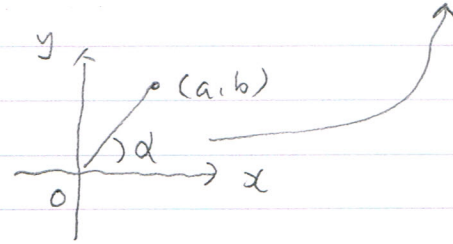 y
(a,b)
α
x
O